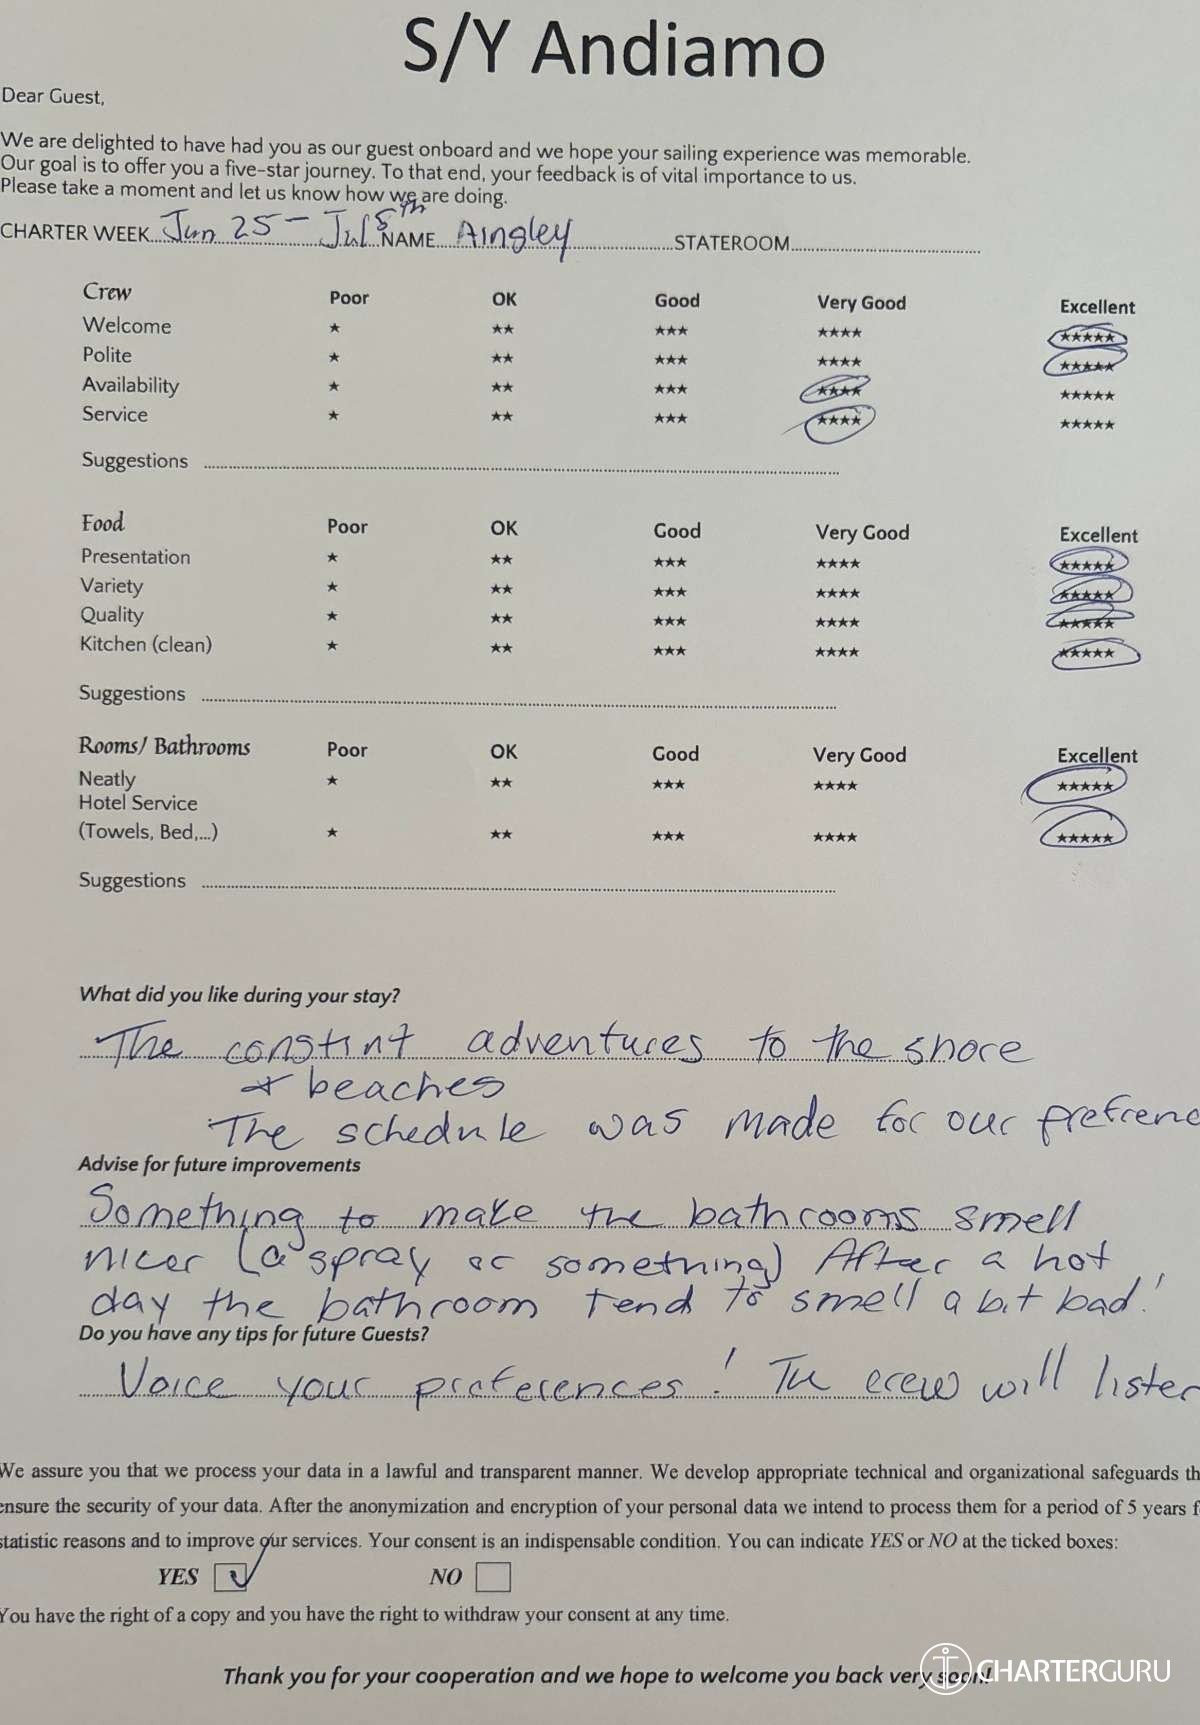 S/Y Andiamo
Dear Guest,
We are delighted to have had you as our guest onboard and we hope your sailing experience was memorable.
Our goal is to offer you a five-star journey. To that end, your feedback is of vital importance to us.
Please take a moment and let us know how we are doing.
CHARTER WEEK Jun 25 - Jul 5th NAME Aingley STATEROOM
Crew Poor OK Good Very Good Excellent
Welcome ★ ★★ ★★★ ★★★★ ★★★★★
Polite ★ ★★ ★★★ ★★★★ ★★★★★
Availability ★ ★★ ★★★ ★★★★ ★★★★★
Service ★ ★★ ★★★ ★★★★ ★★★★★
Suggestions
Food Poor OK Good Very Good Excellent
Presentation ★ ★★ ★★★ ★★★★ ★★★★★
Variety ★ ★★ ★★★ ★★★★ ★★★★★
Quality ★ ★★ ★★★ ★★★★ ★★★★★
Kitchen (clean) ★ ★★ ★★★ ★★★★ ★★★★★
Suggestions
Rooms/ Bathrooms Poor OK Good Very Good Excellent
Neatly ★ ★★ ★★★ ★★★★ ★★★★★
Hotel Service
(Towels, Bed,...) ★ ★★ ★★★ ★★★★ ★★★★★
Suggestions
What did you like during your stay?
The constint adventures to the shore
+ beaches
The schedule was made for our prefrenc
Advise for future improvements
Something to make the bathrooms smell
nicer (a spray or something) After a hot
day the bathroom tend to smell a bit bad!
Do you have any tips for future Guests?
Voice your preferences! The crew will listen
We assure you that we process your data in a lawful and transparent manner. We develop appropriate technical and organizational safeguards th
ensure the security of your data. After the anonymization and encryption of your personal data we intend to process them for a period of 5 years f
statistic reasons and to improve our services. Your consent is an indispensable condition. You can indicate YES or NO at the ticked boxes:
YES NO
You have the right of a copy and you have the right to withdraw your consent at any time.
Thank you for your cooperation and we hope to welcome you back very soon!
CHARTERGURU